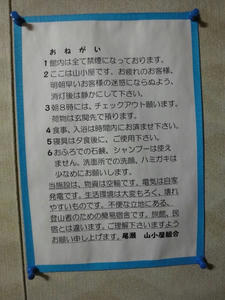 おねがい
1 館内は全て禁煙になっております。
2 ここは山小屋です。お疲れのお客様、
明朝早いお客様の迷惑にならぬよう、
消灯後は静かにして下さい。
3 朝8時には、チェックアウト願います。
荷物は玄関先で預ります。
4 食事、入浴は時間内にお済ませ下さい。
5 寝具は夕食後に、ご使用下さい。
6 おふろでの石鹸、シャンプーは使え
ません。洗面所での洗顔、ハミガキは
少なめにお願いします。
当施設は、物資は空輸です。電気は自家
発電です。生活環境は大変もろく、壊れ
やすいものです。不便な立地にある、
登山者のための簡易宿舎です。旅館、民
宿とは違います。ご理解下さいますよう
お願い申し上げます。尾瀬 山小屋組合